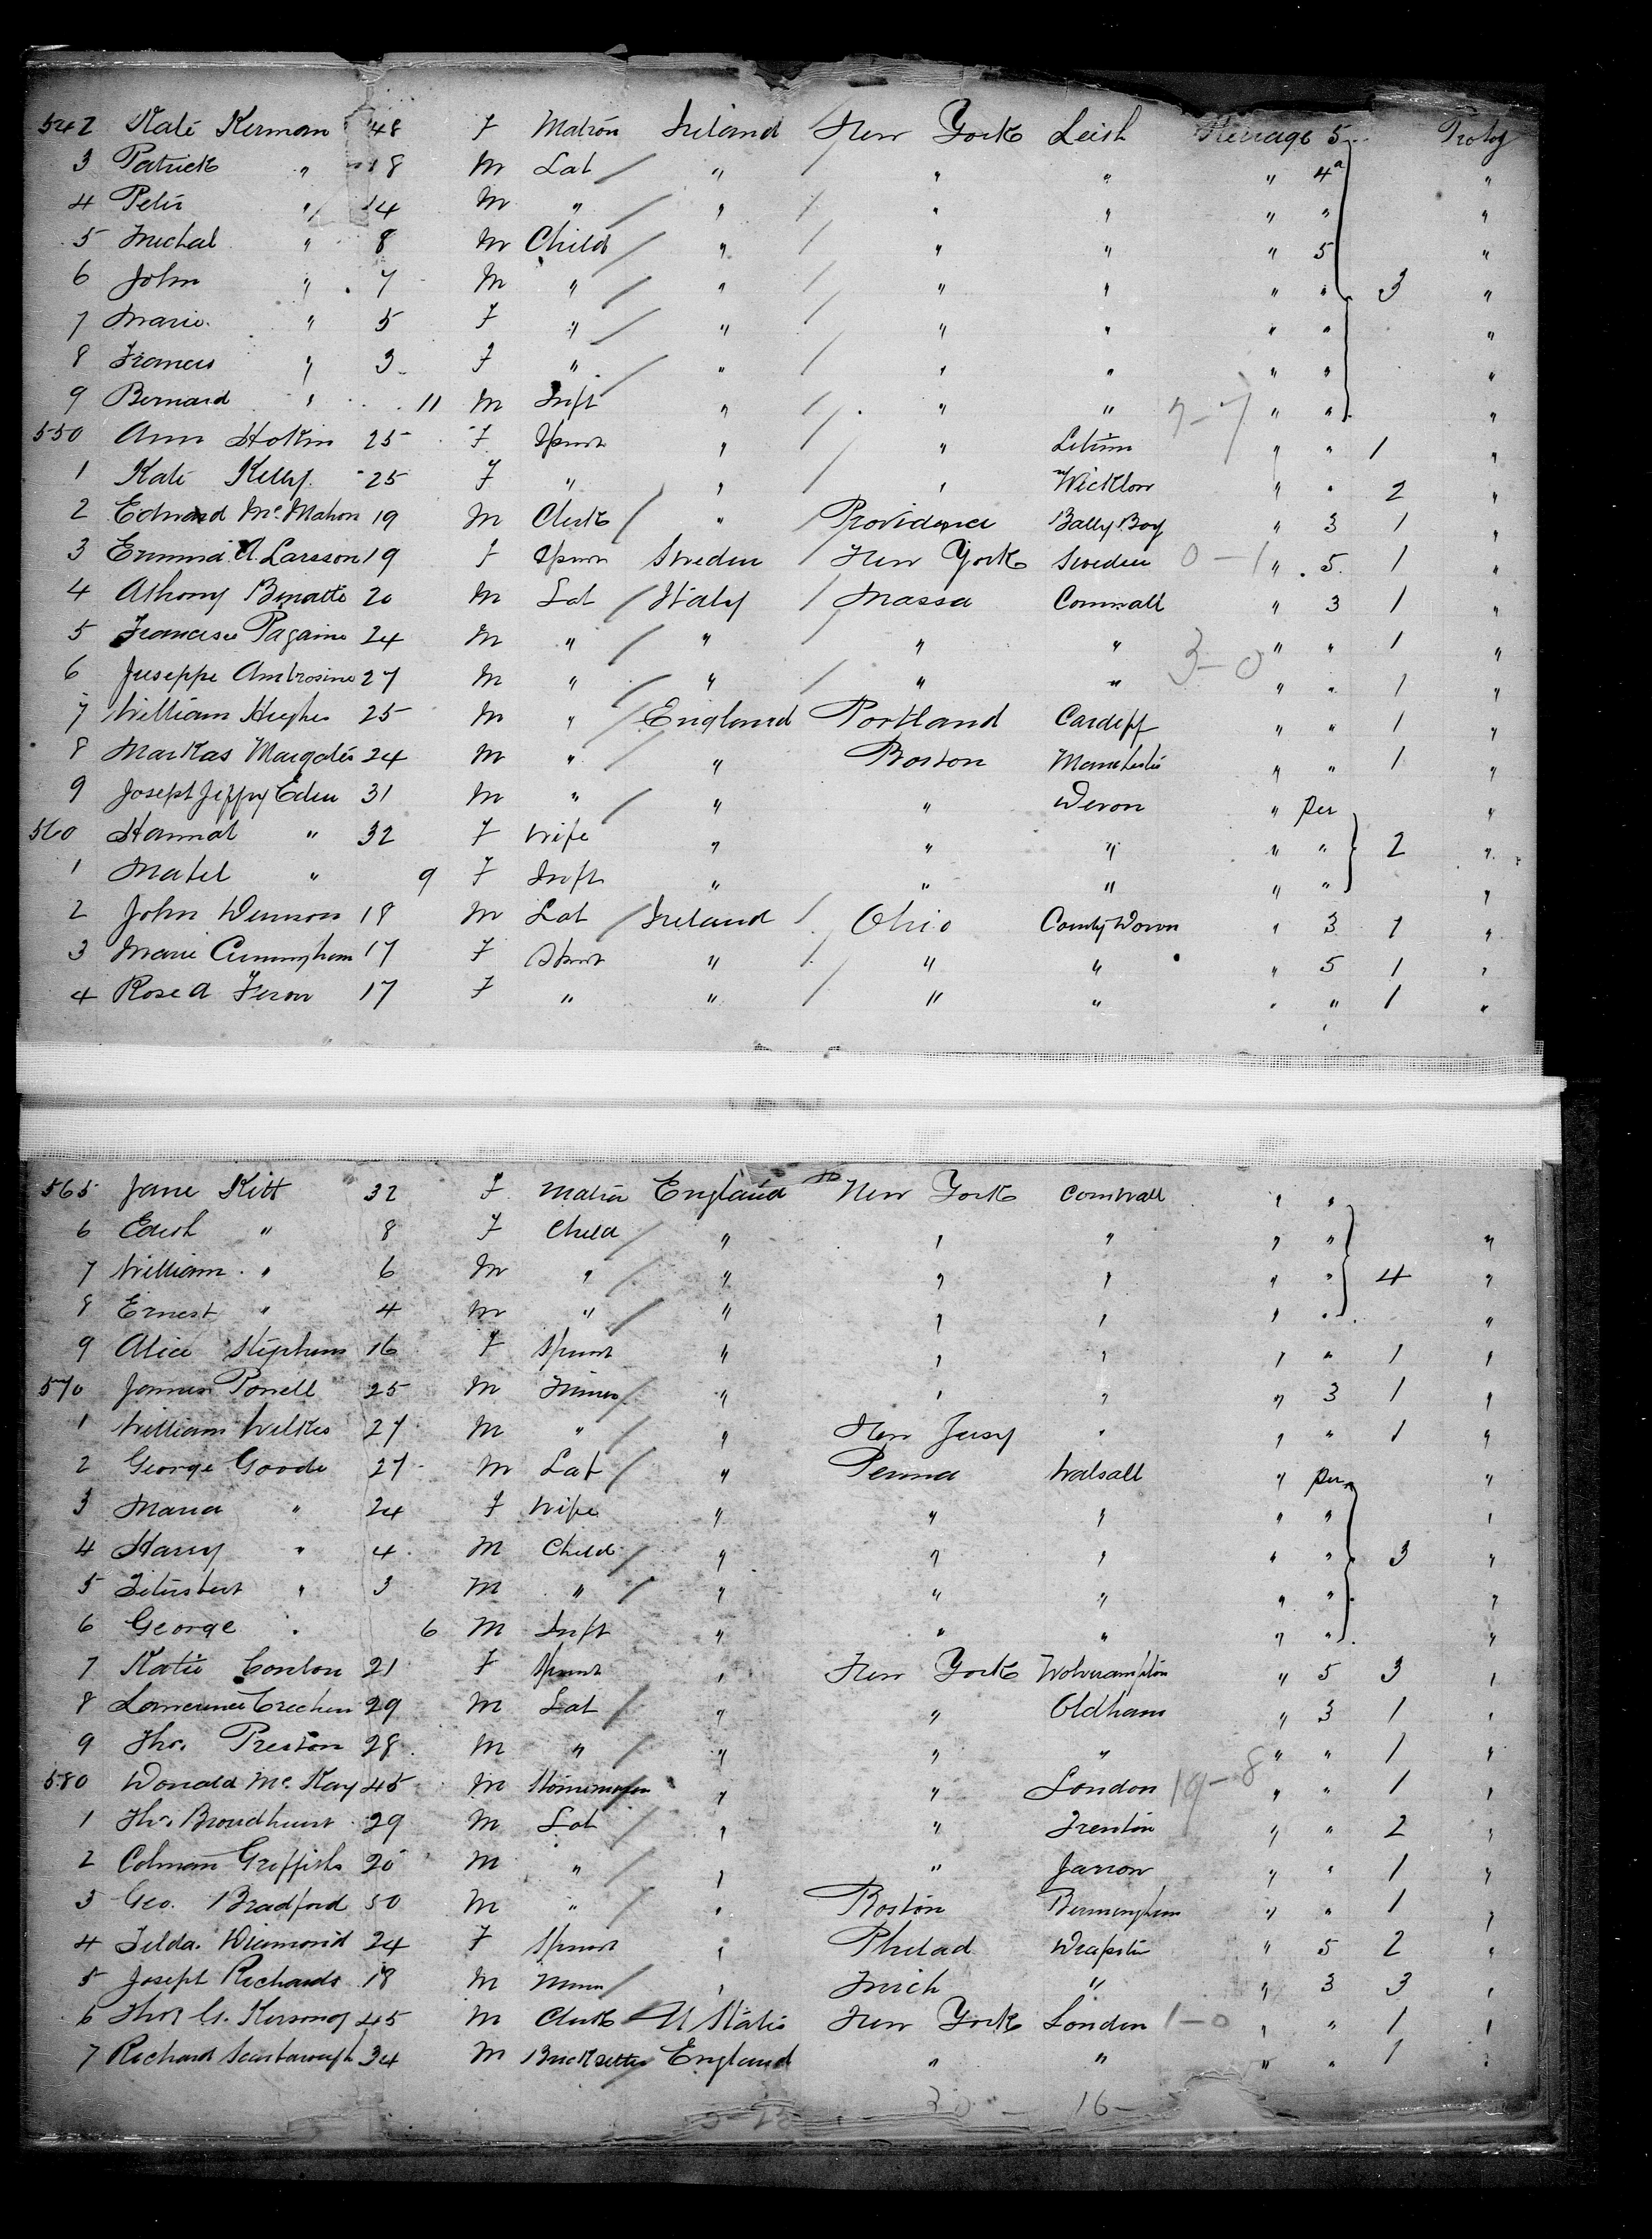 542 Kate Kernan 48 F Matron Ireland New York Leish Steerage 5 Protog
3 Patrick " 18 M Lab " " " " 4a "
4 Peter " 14 M " " " " " " "
5 Michal " 8 M Child " " " " 5 "
6 John " 7 M " " " " " " 3 "
7 Marie " 5 F " " " " " " "
8 Frances " 3 F " " " " " " "
9 Bernard " 11 M Inft " " " 7-7 " " "
550 Ann 25 F Spinst " " Letrim " " 1 "
1 Kate Kelly 25 F " " " Wicklow " " 2 "
2 Edward McMahon 19 M Clerk " Providence Bally Boy " 3 1 "
3 Emma A. Larsson 19 F Spinst Sweden New York Sweden 0-1 " 5 1 "
4 Athony 20 M Lab Italy Massa Cornwall " 3 1 "
5 Pagaine 24 M " " " " " " 1 "
6 Juseppe Ambrosine 27 M " " " " 3-0 " " 1 "
7 William Hughes 25 M " England Portland Cardiff " " 1 "
8 Markas 24 M " " Boston Manchester " " 1 "
9 Joseph Eden 31 M " " " Devon " per "
560 Hannah " 32 F Wife " " " " " 2 "
1 Mabel " 9 F Inft " " " " " "
2 John 18 M Lab Ireland Ohio County Down " 3 1 "
3 Marie Cunningham 17 F Spinst " " " " 5 1 "
4 Rose A 17 F " " " " " " 1 "
565 Jane Kitt 32 F Matron England New York Cornwall " "
6 Edith " 8 F Child " " " " " "
7 William " 6 M " " " " " " 4 "
8 Ernest " 4 M " " " " " " "
9 Alice Stephens 16 F Spinst " " " " " 1 "
570 James Powell 25 M " " " " 3 1 "
1 William Wilkes 27 M " " New Jersy " " " 1 "
2 George Goode 27 M Lab " Penna Walsall " per "
3 Maria " 24 F Wife " " " " " "
4 Harry " 4 M Child " " " " " 3 "
5 " 3 M " " " " " " "
6 George " 6 M Inft " " " " " "
7 Katie Conlon 21 F Spinst " New York Wolverampton " 5 3 "
8 29 M Lab " " Oldham " 3 1 "
9 Thos. Preston 28 M " " " " " " 1 "
580 Donald McKay 45 M " " London 19-8 " " 1 "
1 Thos. Broadhurst 29 M Lab " " Trenton " " 2 "
2 Colman Griffiths 20 M " " " Jarrow " " 1 "
3 Geo. Bradford 50 M " " Boston Birmingham " " 1 "
4 Tilda Diamond 24 F Spinst " Philad " 5 2 "
5 Joseph Richards 18 M Miner " Mich " " 3 3 "
6 Thos G. 45 M Clerk U States New York London 1-0 " " 1 "
7 Richard Scarborough 34 M Brick setter England " " " " 1 "
30 - 16-